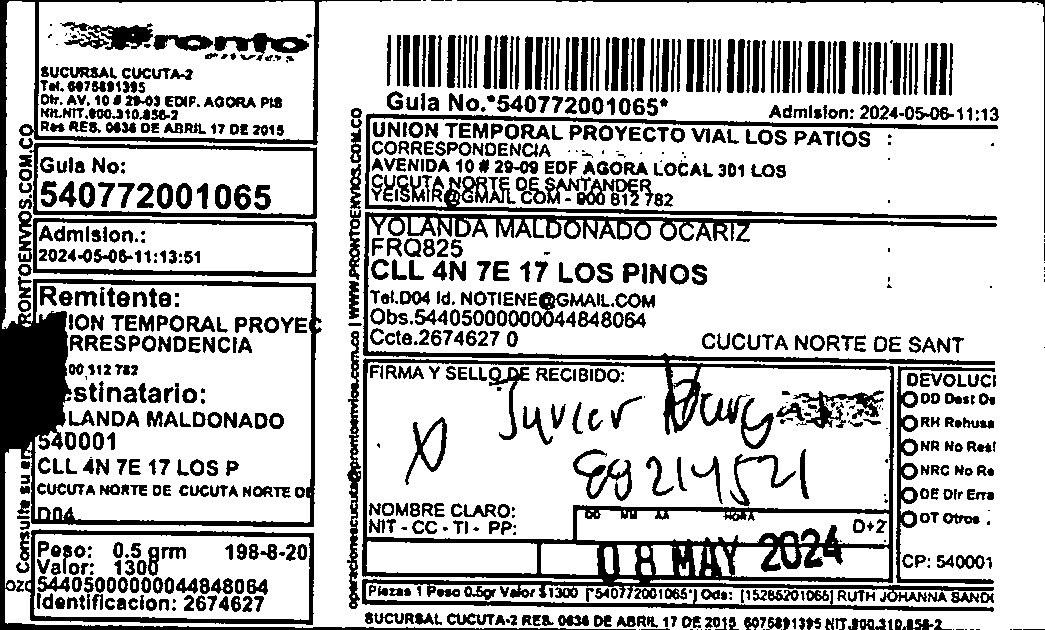 Pronto
envios
SUCURSAL CUCUTA-2
Tel. 6075891395
Dir. AV. 10 # 29-03 EDIF. AGORA PIS
Nit.NIT.800.310.856-2
Res RES. 0636 DE ABRIL 17 DE 2015
Guia No:
540772001065
Admision.:
2024-05-06-11:13:51
Remitente:
ION TEMPORAL PROYEC
RRESPONDENCIA
00,112 782
estinatario:
LANDA MALDONADO
540001
CLL 4N 7E 17 LOS P
CUCUTA NORTE DE CUCUTA NORTE DE
D04
Peso: 0.5 grm 198-8-20
Valor: 1300
544050000000044848064
Identificacion: 2674627
Consulte su
RONTOENVIOS.COM.CO
Guia No.*540772001065*
Admision: 2024-05-06-11:13
UNION TEMPORAL PROYECTO VIAL LOS PATIOS :
CORRESPONDENCIA
AVENIDA 10 # 29-09 EDF AGORA LOCAL 301 LOS
CUCUTA NORTE DE SANTANDER
YEISMIR@GMAIL COM - 900 812 782
YOLANDA MALDONADO OCARIZ
FRQ825
CLL 4N 7E 17 LOS PINOS
Tel.D04 Id. NOTIENE@GMAIL.COM
Obs.544050000000044848064
Ccte.2674627 0
CUCUTA NORTE DE SANT
operacionescucuta@prontoenvios.com.co | WWW.PRONTOENVIOS.COM.CO
FIRMA Y SELLO DE RECIBIDO:
X
Javier
88214521
NOMBRE CLARO:
NIT - CC - TI - PP:
DD MM AA HORA
D+2
08 MAY 2024
DEVOLUCI
DD Dest De
RH Rehusa
NR No Resi
NRC No Re
DE Dir Erra
OT Otros .
CP: 540001
Piezas 1 Peso 0.5gr Valor $1300 [*540772001065*] Ods: [15265201065] RUTH JOHANNA SANDO
SUCURSAL CUCUTA-2 RES. 0636 DE ABRIL 17 DE 2015 6075891395 NIT.800.310.856-2